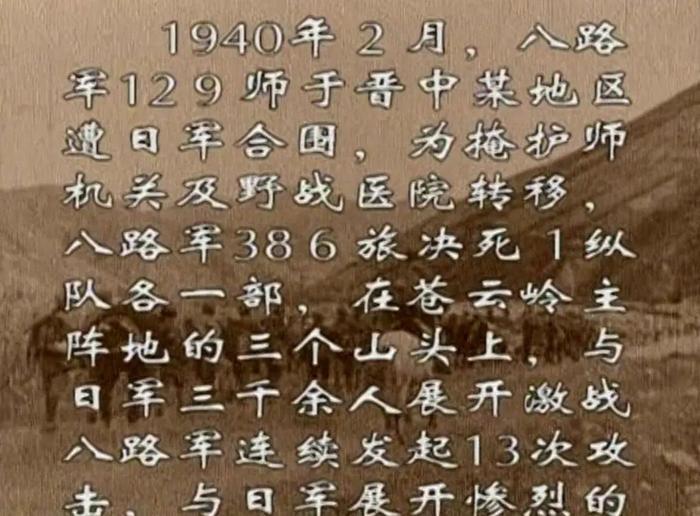 1940年2月，八路
军129师于晋中某地区
遭日军合围，为掩护师
机关及野战医院转移，
八路军386旅决死1纵
队各一部，在苍云岭主
阵地的三个山头上，与
日军三千余人展开激战
八路军连续发起13次攻
击，与日军展开惨烈的